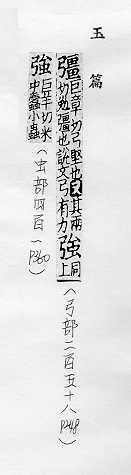 玉篇
彊巨章切弓堅也又其兩切勉彊也說文弓有力強同上（弓部二百五十八 P248）
強巨羊切米中蠹小蟲（虫部四百一 P360）